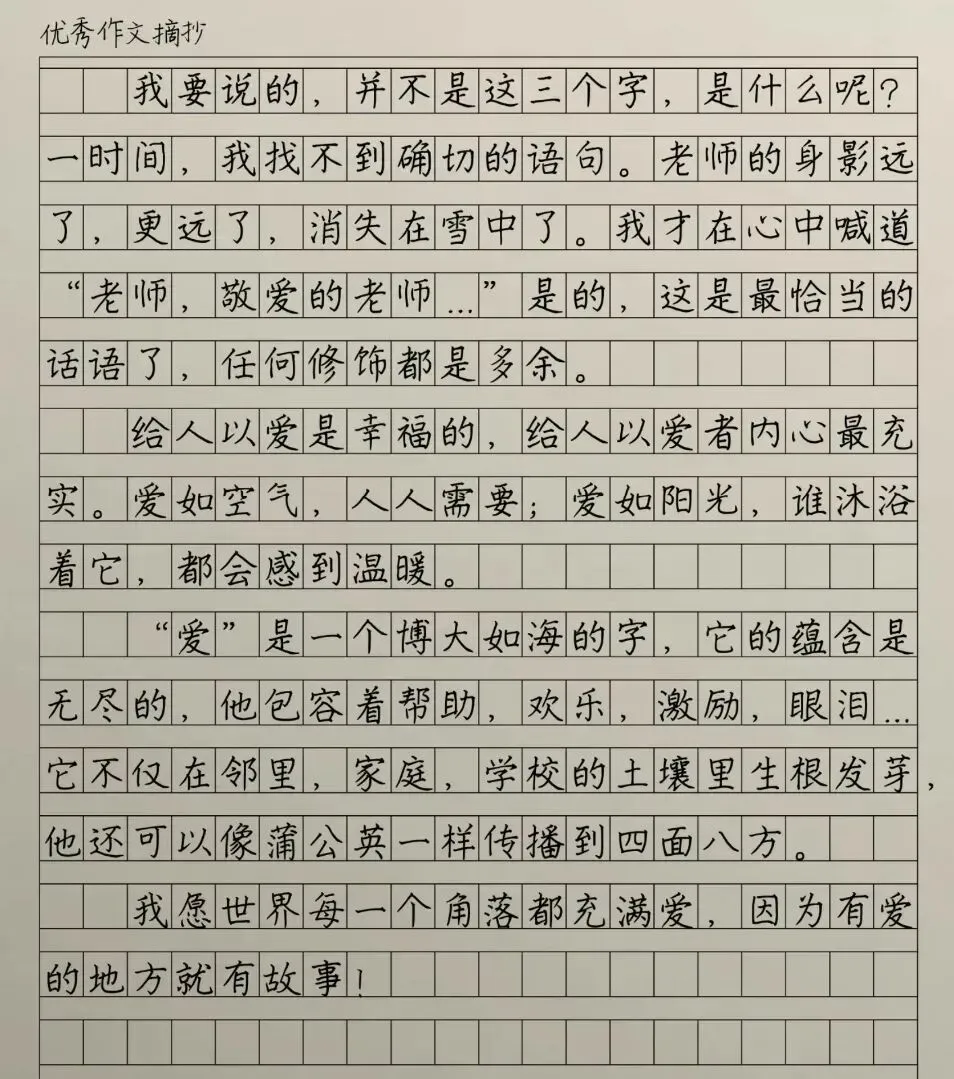 优秀作文摘抄
我要说的，并不是这三个字，是什么呢？
一时间，我找不到确切的语句。老师的身影远
了，更远了，消失在雪中了。我才在心中喊道
“老师，敬爱的老师…”是的，这是最恰当的
话语了，任何修饰都是多余。
给人以爱是幸福的，给人以爱者内心最充
实。爱如空气，人人需要；爱如阳光，谁沐浴
着它，都会感到温暖。
“爱”是一个博大如海的字，它的蕴含是
无尽的，他包容着帮助，欢乐，激励，眼泪…
它不仅在邻里，家庭，学校的土壤里生根发芽，
他还可以像蒲公英一样传播到四面八方。
我愿世界每一个角落都充满爱，因为有爱
的地方就有故事！